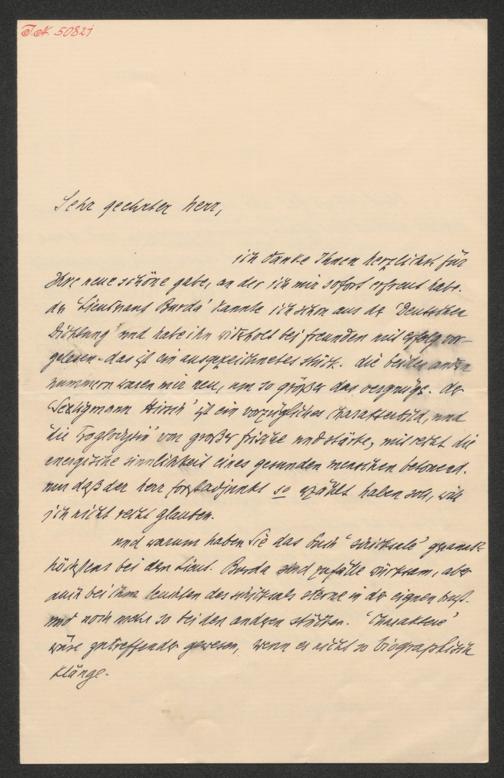 J.N. 50821
Sehr geehrter Herr,
ich danke Ihnen herzlichst für
Ihre neue schöne gabe, an der ich mir sofort erfreut habe.
den Lieutnant Burda' kannte ich schon aus der 'Deutschen
Dichtung' und habe ihn wiederholt bei freunden mit erfolg vor-
gelesen. das ist ein ausgezeichnetes stück. die beiden andern
nummern waren mir neu, um so größer das vergnüge. der
'Seligmann Hirsch' ist ein vorzügliches charakterbild, und
die 'Troglodytin' von großer frische und stärke, mir reizt die
energische sinnlichkeit eines gesunden menschen
nur daß der herr forstadjunkt so erzählt haben soll, will
ich nicht recht glauben.
und warum haben Sie das buch 'schicksale' genannt
höchstens bei dem Lieut. Burda sind zufälle wirksam, aber
auch bei ihm leuchten des schicksals sterne in der eignen brust.
und noch mehr so bei den andern stücken. 'Charaktere'
wäre zutreffender gewesen, wenn es nicht so biographisch
klänge.